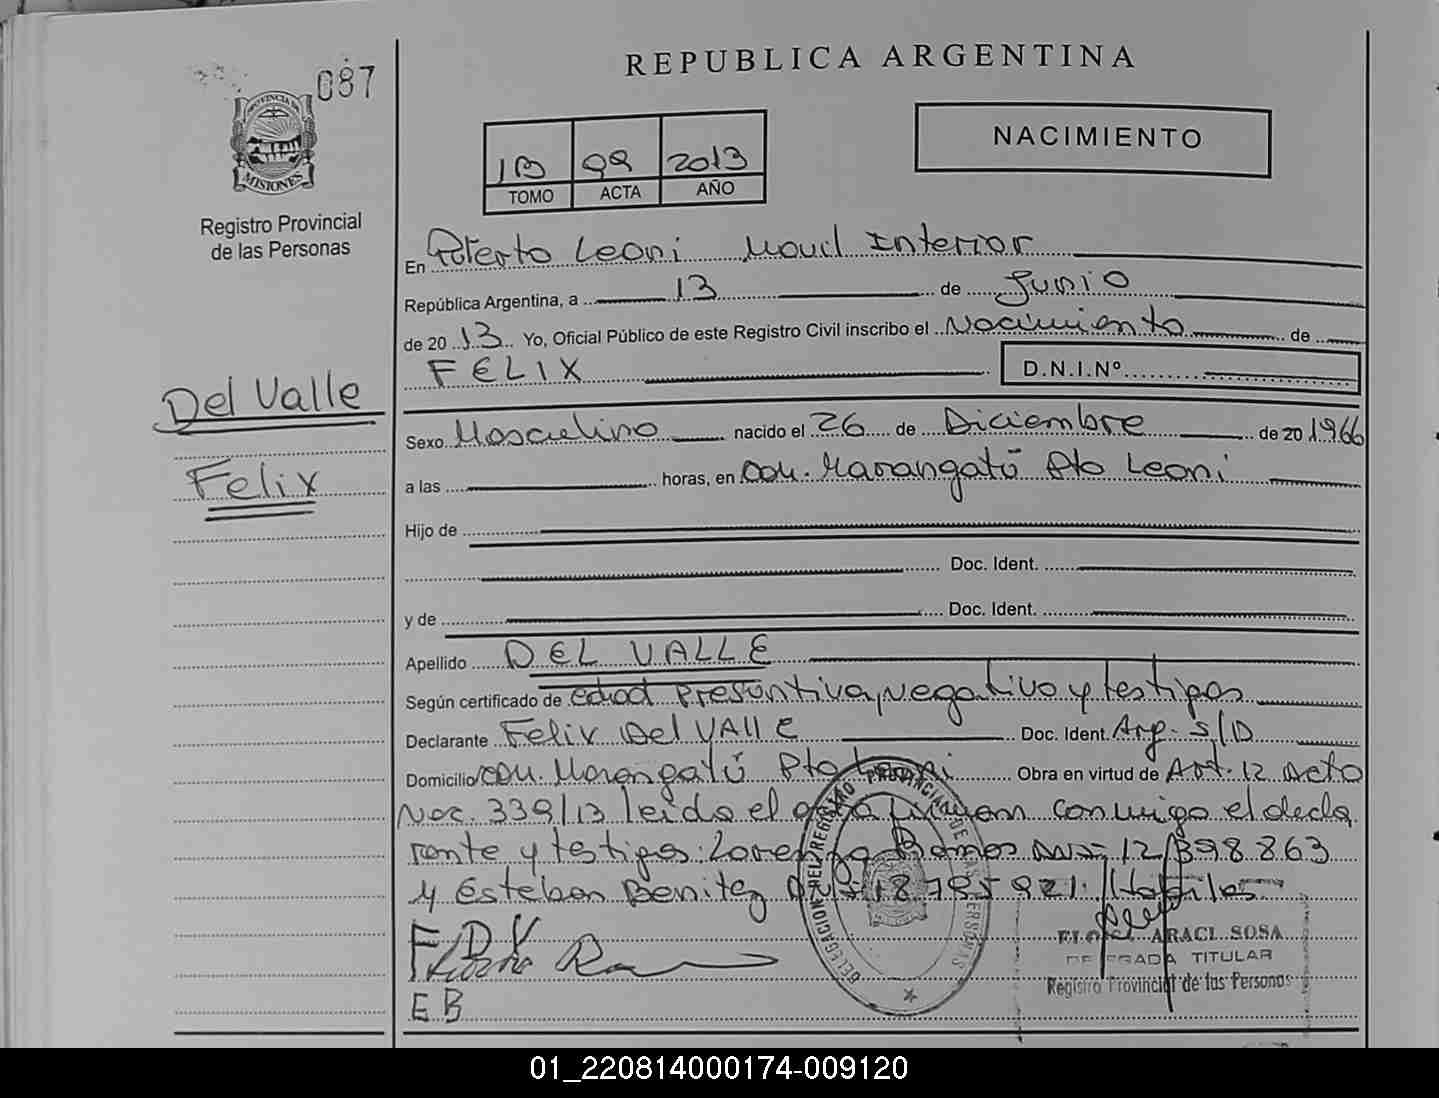 087
PROVINCIA DE
MISIONES
Registro Provincial
de las Personas
Del Valle
Felix
REPUBLICA ARGENTINA
NACIMIENTO
1B 99 2013
TOMO ACTA AÑO
En Puerto Leoni Movil Interior
República Argentina, a 13 de Junio
de 2013 Yo, Oficial Público de este Registro Civil inscribo el Nacimiento de
FELIX D.N.I.Nº
Sexo Masculino nacido el 26 de Diciembre de 20 1966
a las horas, en Com. Marangatú Pto Leoni
Hijo de
Doc. Ident.
y de Doc. Ident.
Apellido DEL VALLE
Según certificado de edad presuntiva, negativo y testigos
Declarante Felix Del VAllE Doc. Ident. Arg. S/D
Domicilio Com. Marangatú Pto Leoni Obra en virtud de Art. 12 Acto
Nac. 339/13 leida el acta firman conmigo el decla
rante y testigos: Lorenzo Ramos DNI 12 898 863
y Esteban Benitez DNI 18 795 921. Habiles
F D V
E B
DELEGACION DEL REGISTRO PROVINCIAL DE LAS PERSONAS
ARACI SOSA
DELEGADA TITULAR
Registro Provincial de las Personas
01_220814000174-009120